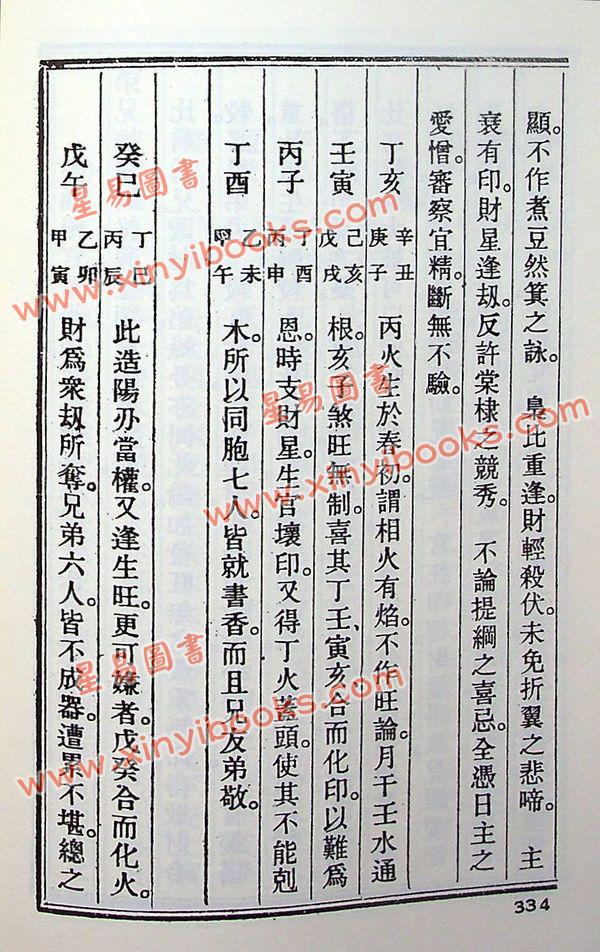 顯。不作煮豆然箕之詠。 梟比重逢。財輕殺伏。未免折翼之悲啼。 主
衰有印。財星逢刼。反許棠棣之競秀。 不論提綱之喜忌。全憑日主之
愛憎。審察宜精。斷無不驗。
丁亥 辛丑 庚子 丙火生於春初。謂相火有焰。不作旺論。月干壬水通
壬寅 己亥 戊戌 根。亥子煞旺無制。喜其丁壬、寅亥合而化印。以難爲
丙子 丁酉 丙申 恩。時支財星生官壞印。又得丁火蓋頭。使其不能剋
丁酉 乙未 甲午 木。所以同胞七人。皆就書香。而且兄友弟敬。
癸巳 丁巳 丙辰 此造陽刃當權。又逢生旺。更可嫌者。戊癸合而化火。
戊午 乙卯 甲寅 財爲衆刼所奪。兄弟六人。皆不成器。遭累不堪。總之
334
星易圖書
www.xinyibooks.com
星易圖書
www.xinyibooks.com
星易圖書
www.xinyibooks.com